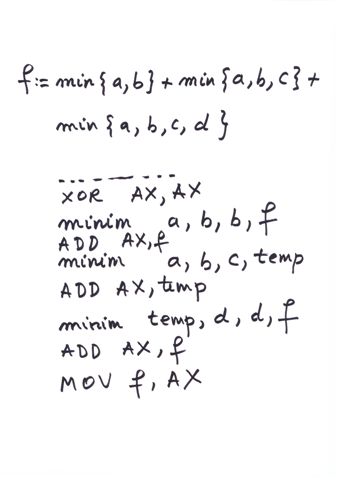 f:= min{a,b} + min{a,b,c} +
min {a, b, c, d}
XOR AX, AX
minim a, b, b, f
ADD AX, f
minim a, b, c, temp
ADD AX, temp
minim temp, d, d, f
ADD AX, f
MOV f, AX